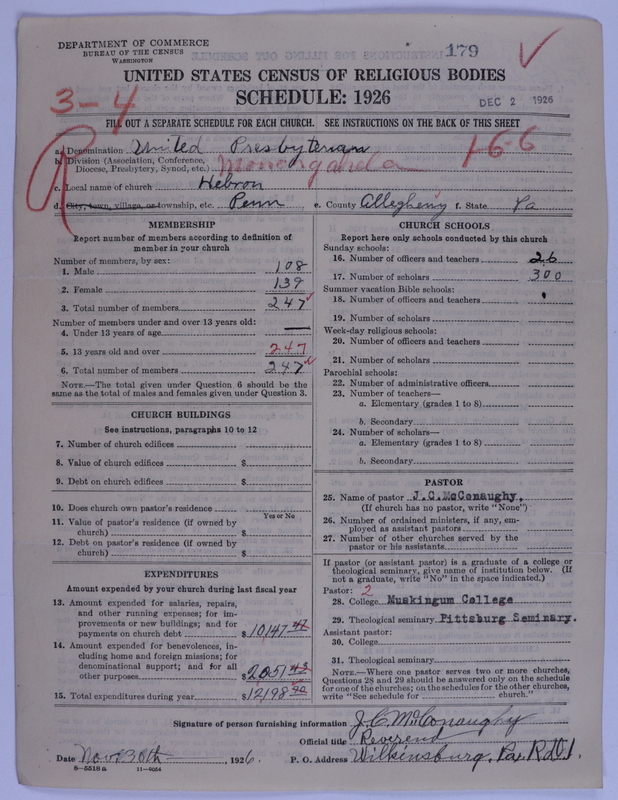 DEPARTMENT OF COMMERCE
BUREAU OF THE CENSUS
WASHINGTON
179
UNITED STATES CENSUS OF RELIGIOUS BODIES
SCHEDULE: 1926
DEC 2 1926
3-4
FILL OUT A SEPARATE SCHEDULE FOR EACH CHURCH. SEE INSTRUCTIONS ON THE BACK OF THIS SHEET
a. Denomination United Presbyterian
b. Division (Association, Conference, Diocese, Presbytery, Synod, etc.) Monongahela
16-6
c. Local name of church Hebron
d. City, town, village, or township, etc. Penn e. County Allegheny f. State Pa
MEMBERSHIP
Report number of members according to definition of
member in your church
Number of members, by sex:
1. Male 108
2. Female 139
3. Total number of members 247
Number of members under and over 13 years old:
4. Under 13 years of age
5. 13 years old and over 247
6. Total number of members 247
NOTE.—The total given under Question 6 should be the
same as the total of males and females given under Question 3.
CHURCH BUILDINGS
See instructions, paragraphs 10 to 12
7. Number of church edifices
8. Value of church edifices $
9. Debt on church edifices $
10. Does church own pastor's residence
Yes or No
11. Value of pastor's residence (if owned by
church) $
12. Debt on pastor's residence (if owned by
church) $
EXPENDITURES
Amount expended by your church during last fiscal year
13. Amount expended for salaries, repairs,
and other running expenses; for im-
provements or new buildings; and for
payments on church debt $10147
14. Amount expended for benevolences, in-
cluding home and foreign missions; for
denominational support; and for all
other purposes $2051
15. Total expenditures during year $12198
CHURCH SCHOOLS
Report here only schools conducted by this church
Sunday schools:
16. Number of officers and teachers 26
17. Number of scholars 300
Summer vacation Bible schools:
18. Number of officers and teachers
19. Number of scholars
Week-day religious schools:
20. Number of officers and teachers
21. Number of scholars
Parochial schools:
22. Number of administrative officers
23. Number of teachers—
a. Elementary (grades 1 to 8)
b. Secondary
24. Number of scholars—
a. Elementary (grades 1 to 8)
b. Secondary
PASTOR
25. Name of pastor J.C.McConaughy,
(If church has no pastor, write "None")
26. Number of ordained ministers, if any, em-
ployed as assistant pastors
27. Number of other churches served by the
pastor or his assistants
If pastor (or assistant pastor) is a graduate of a college or
theological seminary, give name of institution below. (If
not a graduate, write "No" in the space indicated.)
Pastor: 2
28. College Muskingum College
29. Theological seminary Pittsburg Seminary.
Assistant pastor:
30. College
31. Theological seminary
NOTE.—Where one pastor serves two or more churches,
Questions 28 and 29 should be answered only on the schedule
for one of the churches; on the schedules for the other churches,
write "See schedule for church."
Signature of person furnishing information J.C. McConaughy
Official title Reverend
Date Nov. 30th, 1926. P. O. Address Wilkinsburg, Pa. R.D.1.
8—5518 a 11—9054